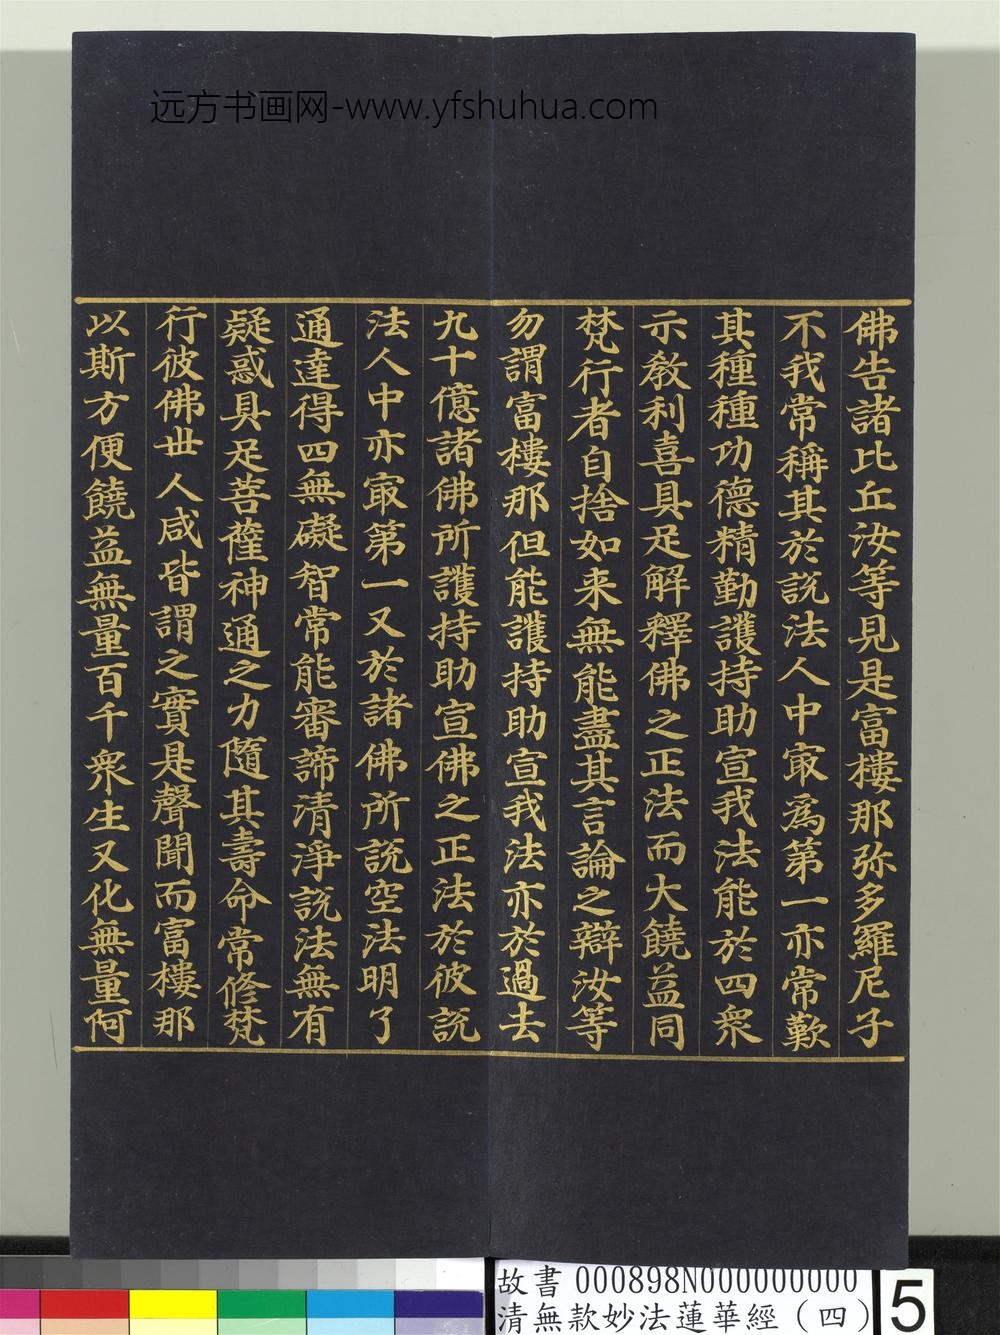 远方书画网-www.yfshuhua.com
佛告諸比丘汝等見是富樓那弥多羅尼子
不我常稱其於說法人中冣為第一亦常歎
其種種功德精勤護持助宣我法能於四眾
示教利喜具足解釋佛之正法而大饒益同
梵行者自捨如来無能盡其言論之辯汝等
勿謂富樓那但能護持助宣我法亦於過去
九十億諸佛所護持助宣佛之正法於彼說
法人中亦冣第一又於諸佛所說空法明了
通達得四無礙智常能審諦清淨說法無有
疑惑具足菩薩神通之力隨其壽命常修梵
行彼佛世人咸皆謂之實是聲聞而富樓那
以斯方便饒益無量百千眾生又化無量阿
故書 000898N000000000
清無款妙法蓮華經（四）
5